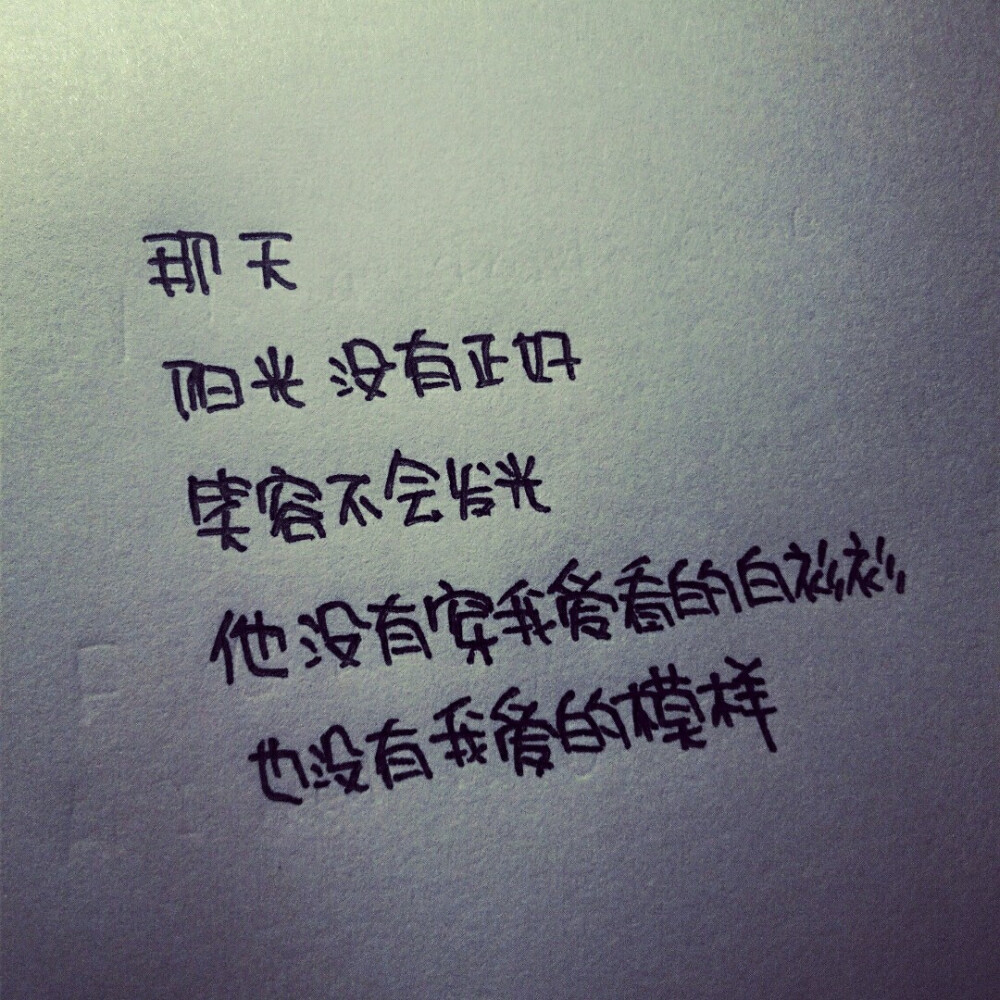 那天
阳光没有正好
笑容不会发光
他没有穿我爱看的白衫衫
也没有我爱的模样